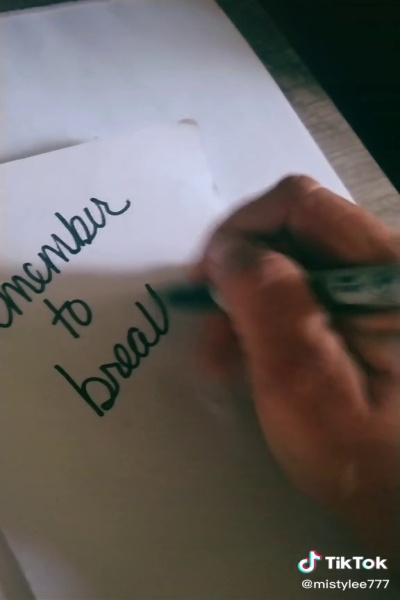 emember
to
brea
TikTok
@mistylee777